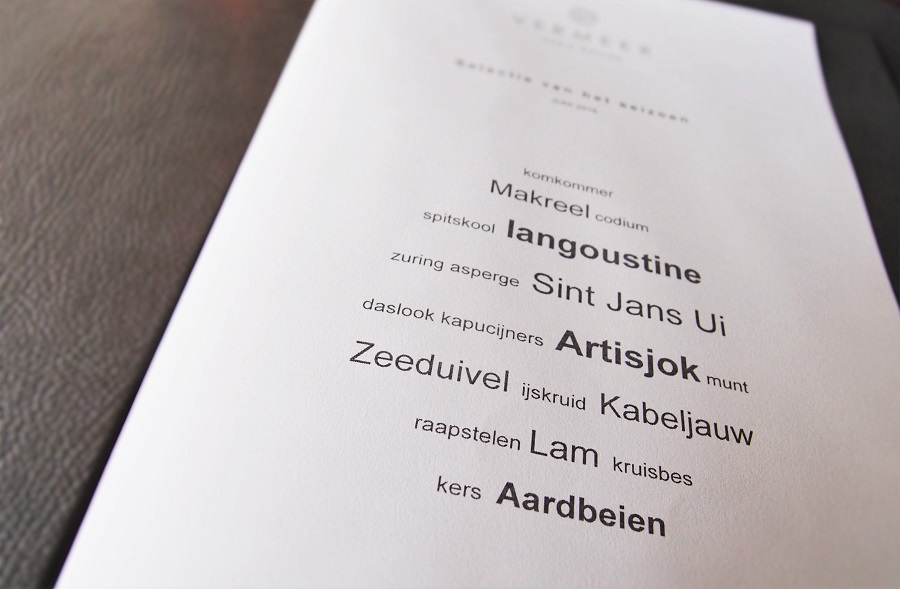 VERMEER
Selectie van het seizoen
komkommer
Makreel codium
spitskool langoustine
zuring asperge Sint Jans Ui
daslook kapucijners Artisjok munt
Zeeduivel ijskruid Kabeljauw
raapstelen Lam kruisbes
kers Aardbeien